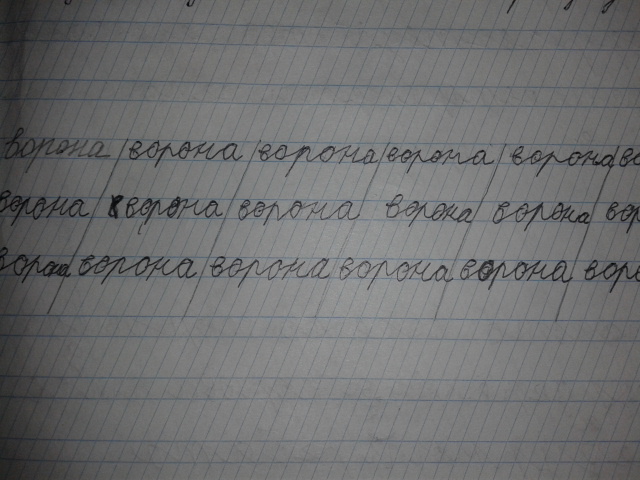 ворона ворона ворона ворона ворона во
ворона ворона ворона ворона ворона вор
ворона ворона ворона ворона ворона воро